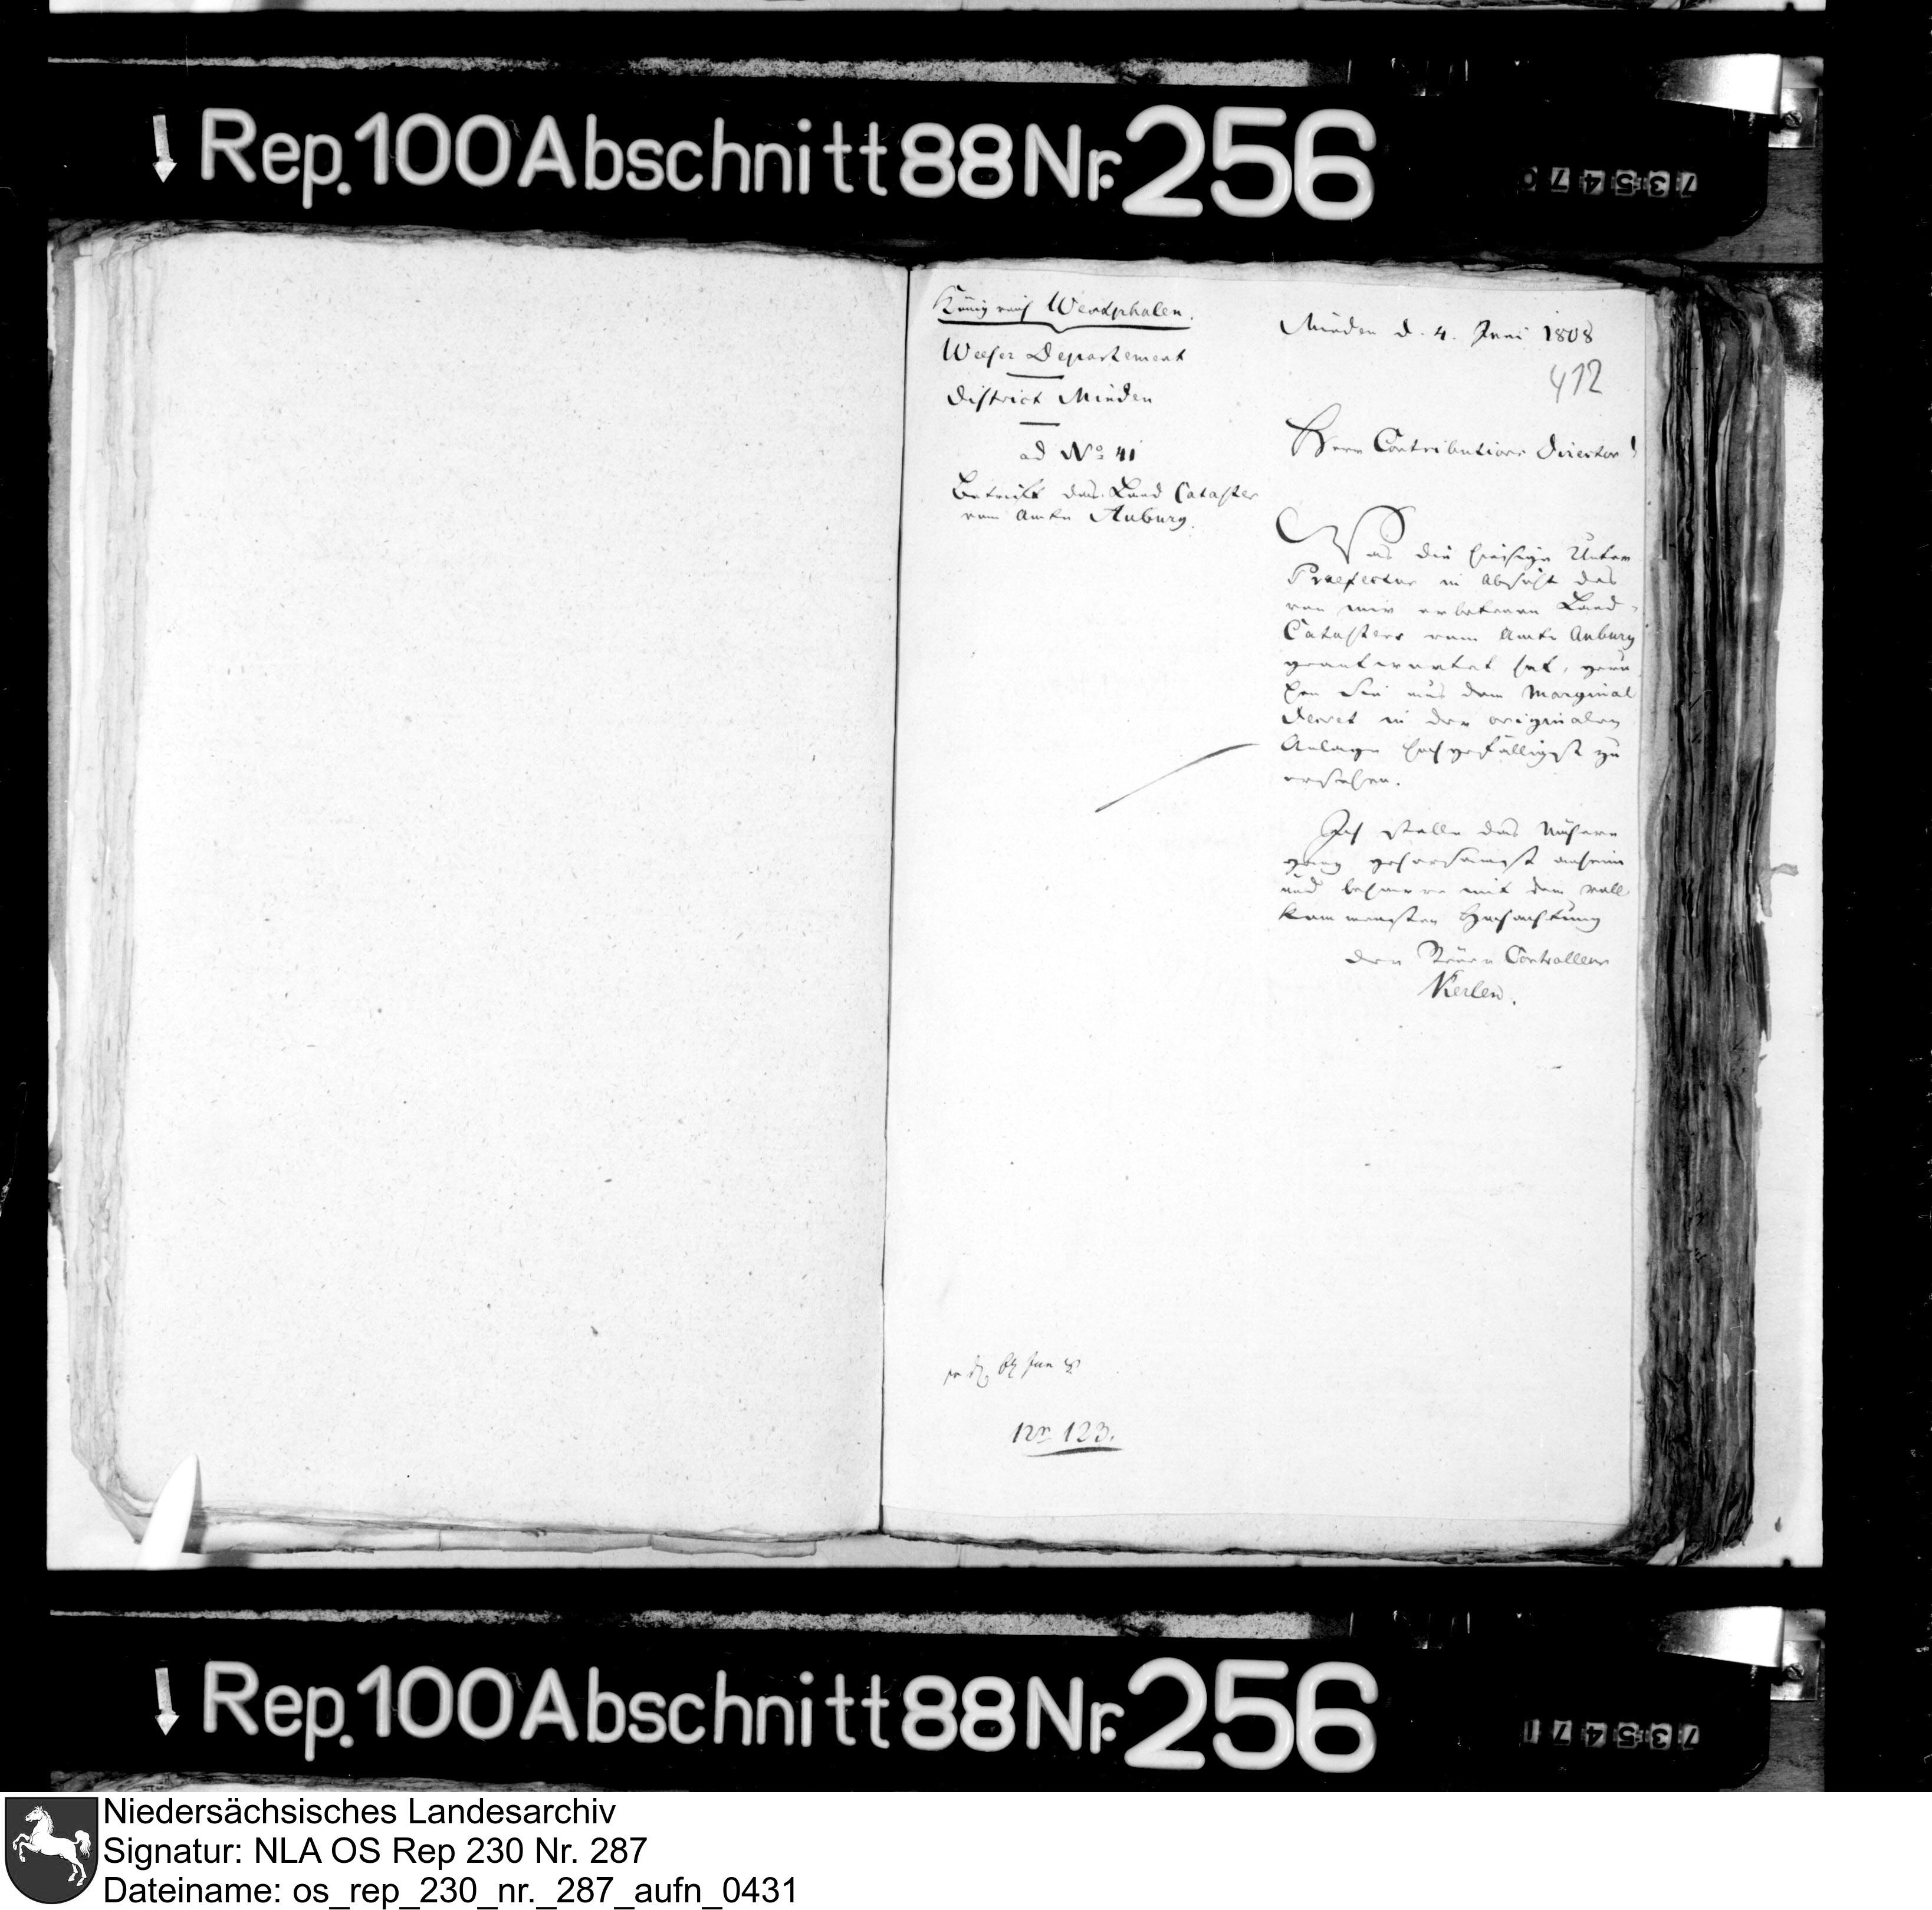 Rep. 100 Abschnitt 88 Nr. 256
Königreich Westphalen.
Weeser Departement
District Minden
ad No 41
Betrifft das Land Cataster
vom Amte Auburg.
Minden d. 4. Juni 1808
412
Herr Contributions Director!
Was die hiesige Unter
Praefectur in Absicht des
von mir erbetenen Land-
Catasters vom Amte Auburg
geantwortet hat, geru-
hen Sie aus dem Marginal
Decret in der originalen
Anlage hochgefälligst zu
ersehen.
Ich stelle das Nähere
ganz gehorsamst anheim
und beharre mit der voll
kommensten Hochachtung
der Steuer Controlleur
Kerlen.
Juni
Nr 123.
Rep. 100 Abschnitt 88 Nr. 256
Niedersächsisches Landesarchiv
Signatur: NLA OS Rep 230 Nr. 287
Dateiname: os_rep_230_nr._287_aufn_0431